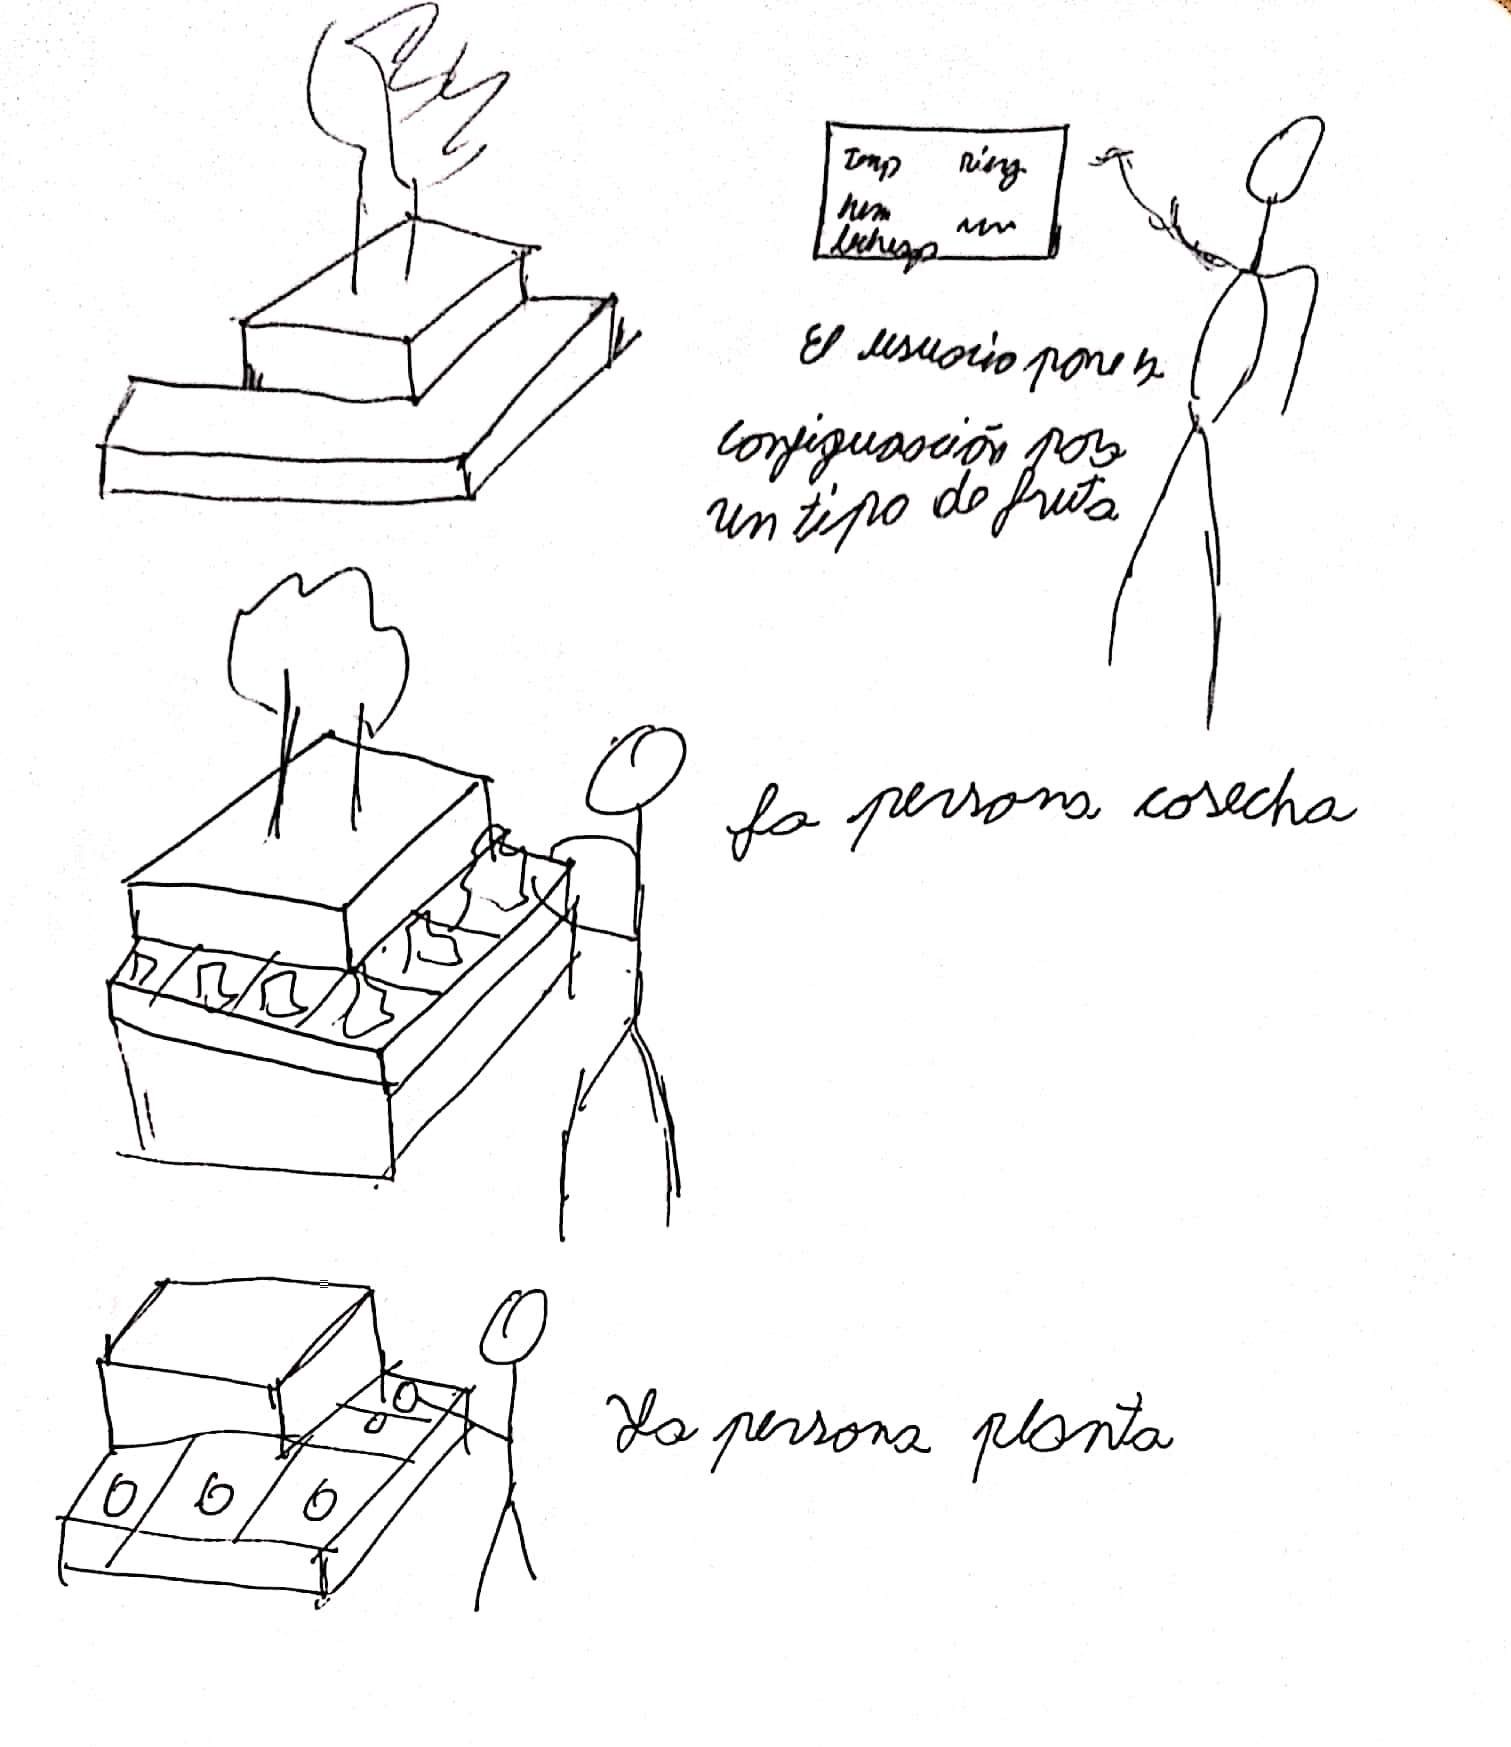 Temp riego
hum
El usuario pone la
configuración por
un tipo de fruta
La persona cosecha
La persona planta